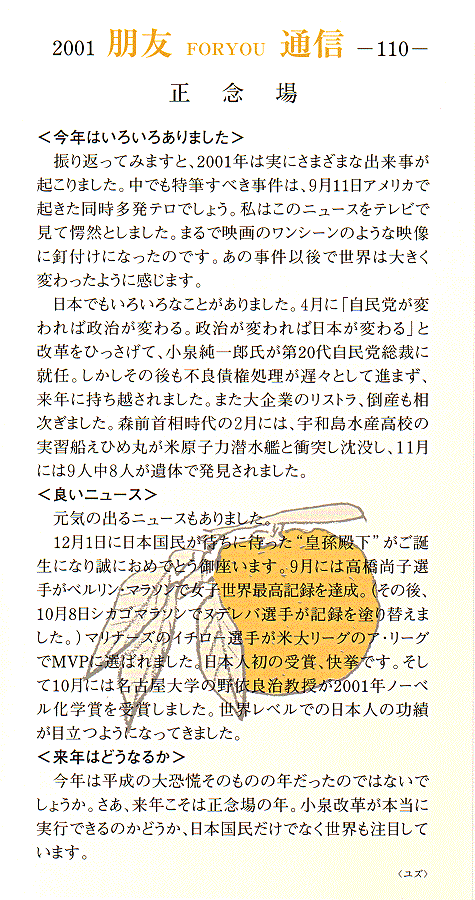 2001 朋友 FORYOU 通信 －110－
正念場
＜今年はいろいろありました＞
振り返ってみますと、2001年は実にさまざまな出来事が
起こりました。中でも特筆すべき事件は、9月11日アメリカで
起きた同時多発テロでしょう。私はこのニュースをテレビで
見て愕然としました。まるで映画のワンシーンのような映像
に釘付けになったのです。あの事件以後で世界は大きく
変わったように感じます。
日本でもいろいろなことがありました。4月に「自民党が変
われば政治が変わる。政治が変われば日本が変わる」と
改革をひっさげて、小泉純一郎氏が第20代自民党総裁に
就任。しかしその後も不良債権処理が遅々として進まず、
来年に持ち越されました。また大企業のリストラ、倒産も相
次ぎました。森前首相時代の2月には、宇和島水産高校の
実習船えひめ丸が米原子力潜水艦と衝突し沈没し、11月
には9人中8人が遺体で発見されました。
＜良いニュース＞
元気の出るニュースもありました。
12月1日に日本国民が待ちに待った“皇孫殿下”がご誕
生になり誠におめでとう御座います。9月には高橋尚子選
手がベルリン・マラソンで女子世界最高記録を達成。（その後、
10月8日シカゴマラソンでヌデレバ選手が記録を塗り替えま
した。）マリナーズのイチロー選手が米大リーグのア・リーグ
でMVPに選ばれました。日本人初の受賞、快挙です。そし
て10月には名古屋大学の野依良治教授が2001年ノーベ
ル化学賞を受賞しました。世界レベルでの日本人の功績
が目立つようになってきました。
＜来年はどうなるか＞
今年は平成の大恐慌そのものの年だったのではないで
しょうか。さあ、来年こそは正念場の年。小泉改革が本当に
実行できるのかどうか、日本国民だけでなく世界も注目して
います。
〈ユズ〉